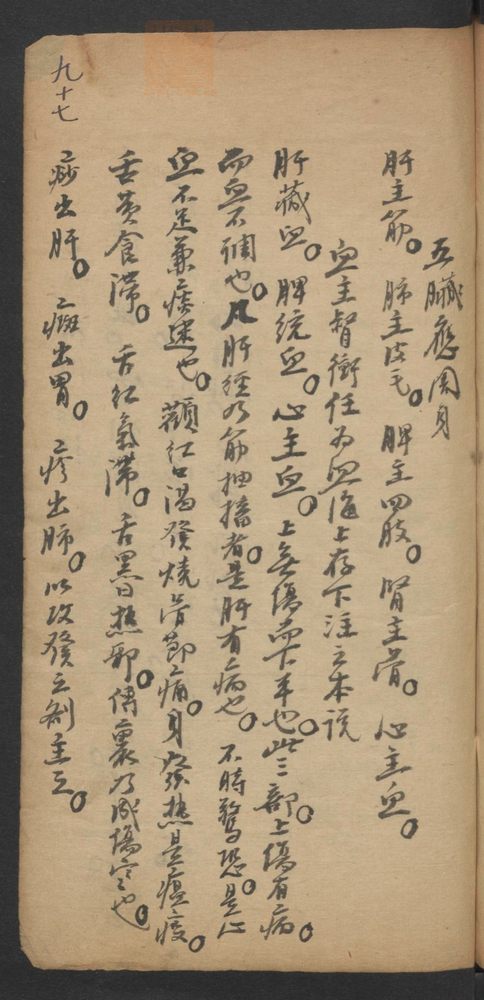 九十七
五臟應周身
肝主筋。肺主皮毛。脾主四肢。腎主骨。心主血。
血主督衝任为血海上存下注之本説
肝藏血。脾統血。心主血。上無傷而下平也。此三部。上傷有病。
而血不調也。凡肝經乃筋抽搐者。是肝有病也。不時驚恐。是心
血不足兼痰迷也。顴紅口渴發燒骨節痛。身發热是瘟疫。
舌黄食滯。舌紅氣滯。舌黑曰热郁。傳裏乃成傷寒也。
痧出肝。癍出胃。疹出肺。以攻發之劑主之。